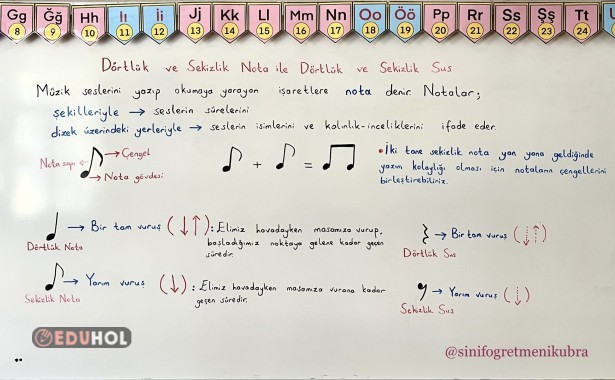 Gg Ğğ Hh Iı İi Jj Kk Ll Mm Nn Oo Öö Pp Rr Ss Şş Tt
8 9 10 11 12 13 14 15 16 17 18 19 20 21 22 23 24
Dörtlük ve Sekizlik Nota ile Dörtlük ve Sekizlik Sus
Müzik seslerini yazıp okumaya yarayan işaretlere nota denir. Notalar;
şekilleriyle → seslerin sürelerini
dizek üzerindeki yerleriyle → seslerin isimlerini ve kalınlık-inceliklerini ifade eder.
Nota sapı
Çengel
Nota gövdesi
+ =
• İki tane sekizlik nota yan yana geldiğinde
yazım kolaylığı olması için notaların çengellerini
birleştirebiliriz.
→ Bir tam vuruş (↓↑) : Elimiz havadayken masamıza vurup,
başladığımız noktaya gelene kadar geçen
süredir.
Dörtlük Nota
→ Bir tam vuruş (↓↑)
Dörtlük Sus
→ Yarım vuruş (↓) : Elimiz havadayken masamıza vurana kadar
geçen süredir.
Sekizlik Nota
→ Yarım vuruş (↓)
Sekizlik Sus
EDUHOL
@sinifogretmenikubra